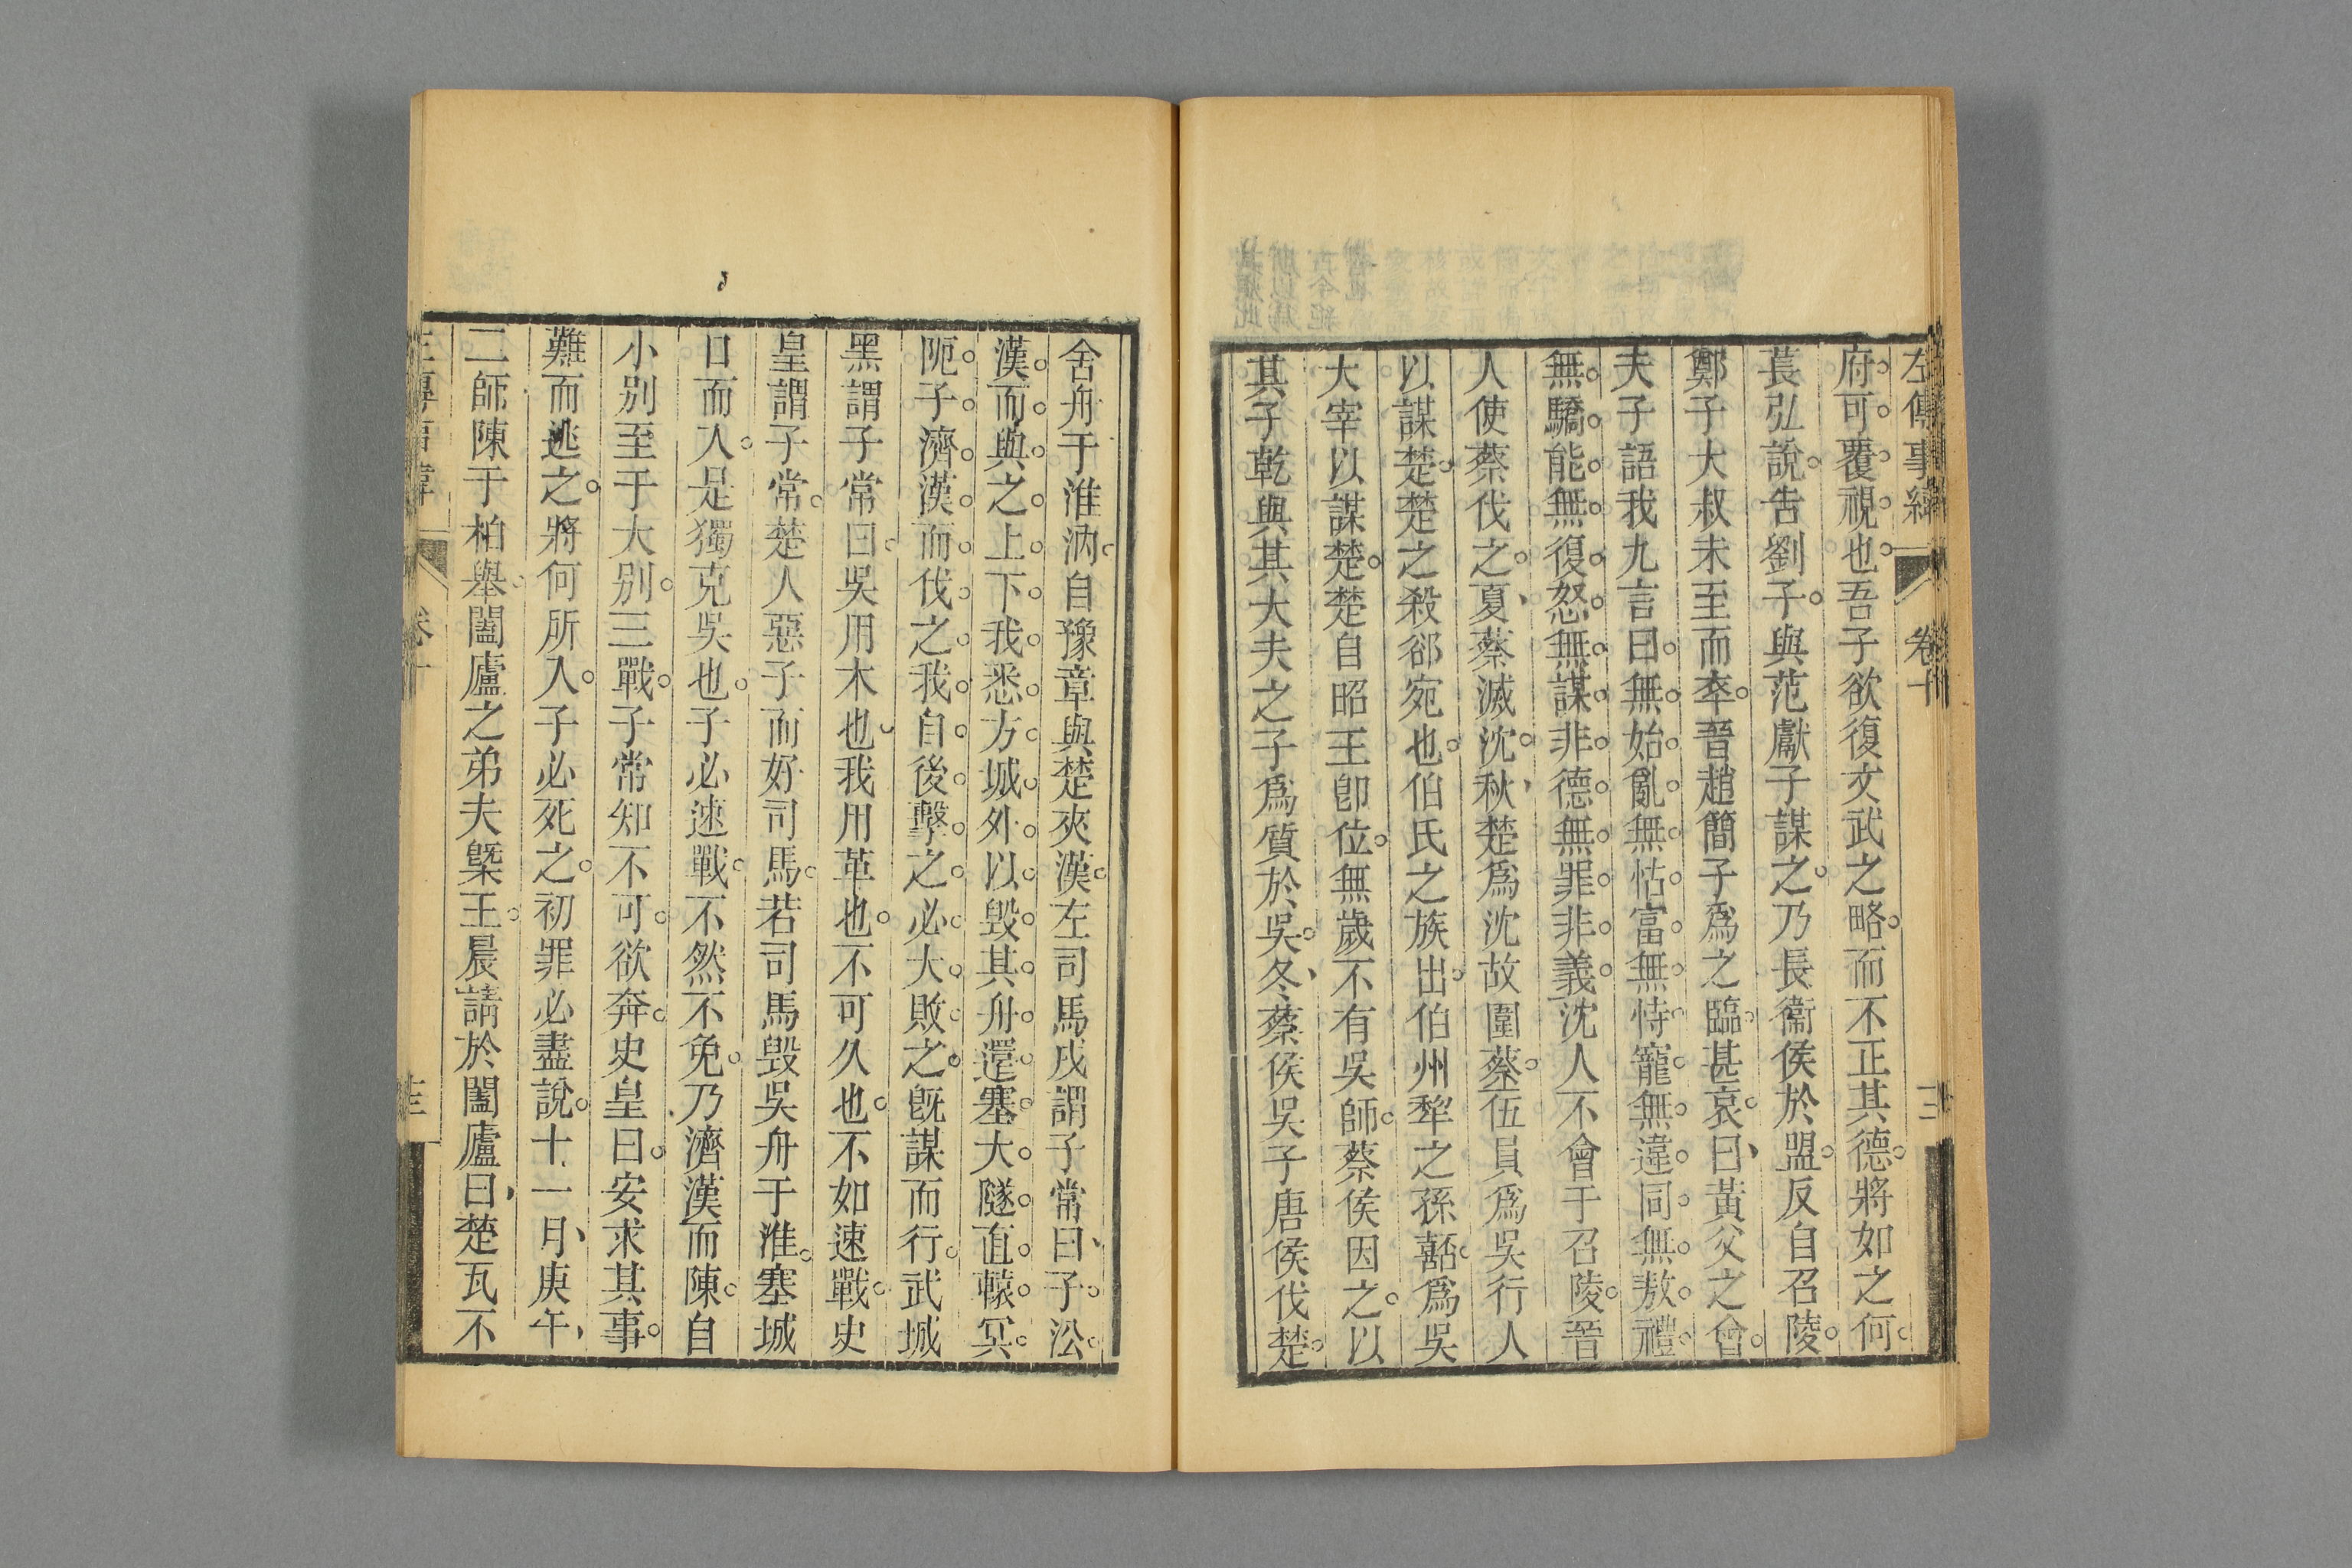 左傳事緯 卷十
府可覆視也吾子欲復文武之略而不正其德將如之何
萇弘說告劉子與范獻子謀之乃長衞侯於盟反自召陵
鄭子大叔未至而卒晉趙簡子爲之臨甚哀曰黃父之會
夫子語我九言曰無始亂無怙富無恃寵無違同無敖禮
無驕能無復怒無謀非德無罪非義沈人不會于召陵晉
人使蔡伐之夏蔡滅沈秋楚爲沈故圍蔡伍員爲吳行人
以謀楚楚之殺郤宛也伯氏之族出伯州犂之孫嚭爲吳
大宰以謀楚楚自昭王卽位無歲不有吳師蔡侯因之以
其子乾與其大夫之子爲質於吳冬蔡侯吳子唐侯伐楚
舍舟于淮汭自豫章與楚夾漢左司馬戌謂子常曰子沿
漢而與之上下我悉方城外以毀其舟還塞大隧直轅冥
阨子濟漢而伐之我自後擊之必大敗之旣謀而行武城
黑謂子常曰吳用木也我用革也不可久也不如速戰史
皇謂子常楚人惡子而好司馬若司馬毀吳舟于淮塞城
口而入是獨克吳也子必速戰不然不免乃濟漢而陳自
小别至于大别三戰子常知不可欲奔史皇曰安求其事
難而逃之將何所入子必死之初罪必盡說十一月庚午
二師陳于柏舉闔廬之弟夫槩王晨請於闔廬曰楚瓦不